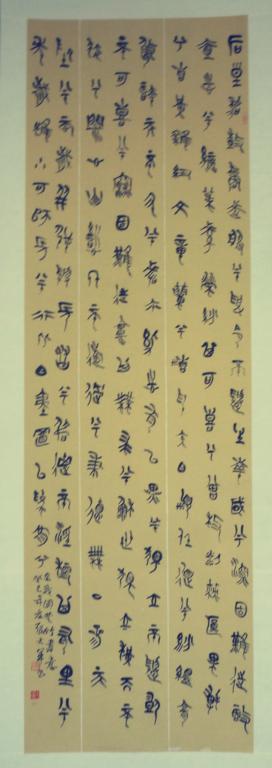 后皇嘉樹橘徠服兮受命不遷生南國兮深固難徙更
壹志兮綠葉素榮紛其可喜兮曾枝剡棘圓果摶
兮青黃雜糅文章爛兮精色內白類任道兮紛縕宜
修姱而不醜兮嗟爾幼志有以異兮獨立不遷豈
不可喜兮深固難徙廓其無求兮蘇世獨立橫而不
流兮閉心自慎終不失過兮秉德無私參天
地兮願歲並謝與長友兮淑離不淫梗其有理兮
年歲雖少可師長兮行比伯夷置以為像兮